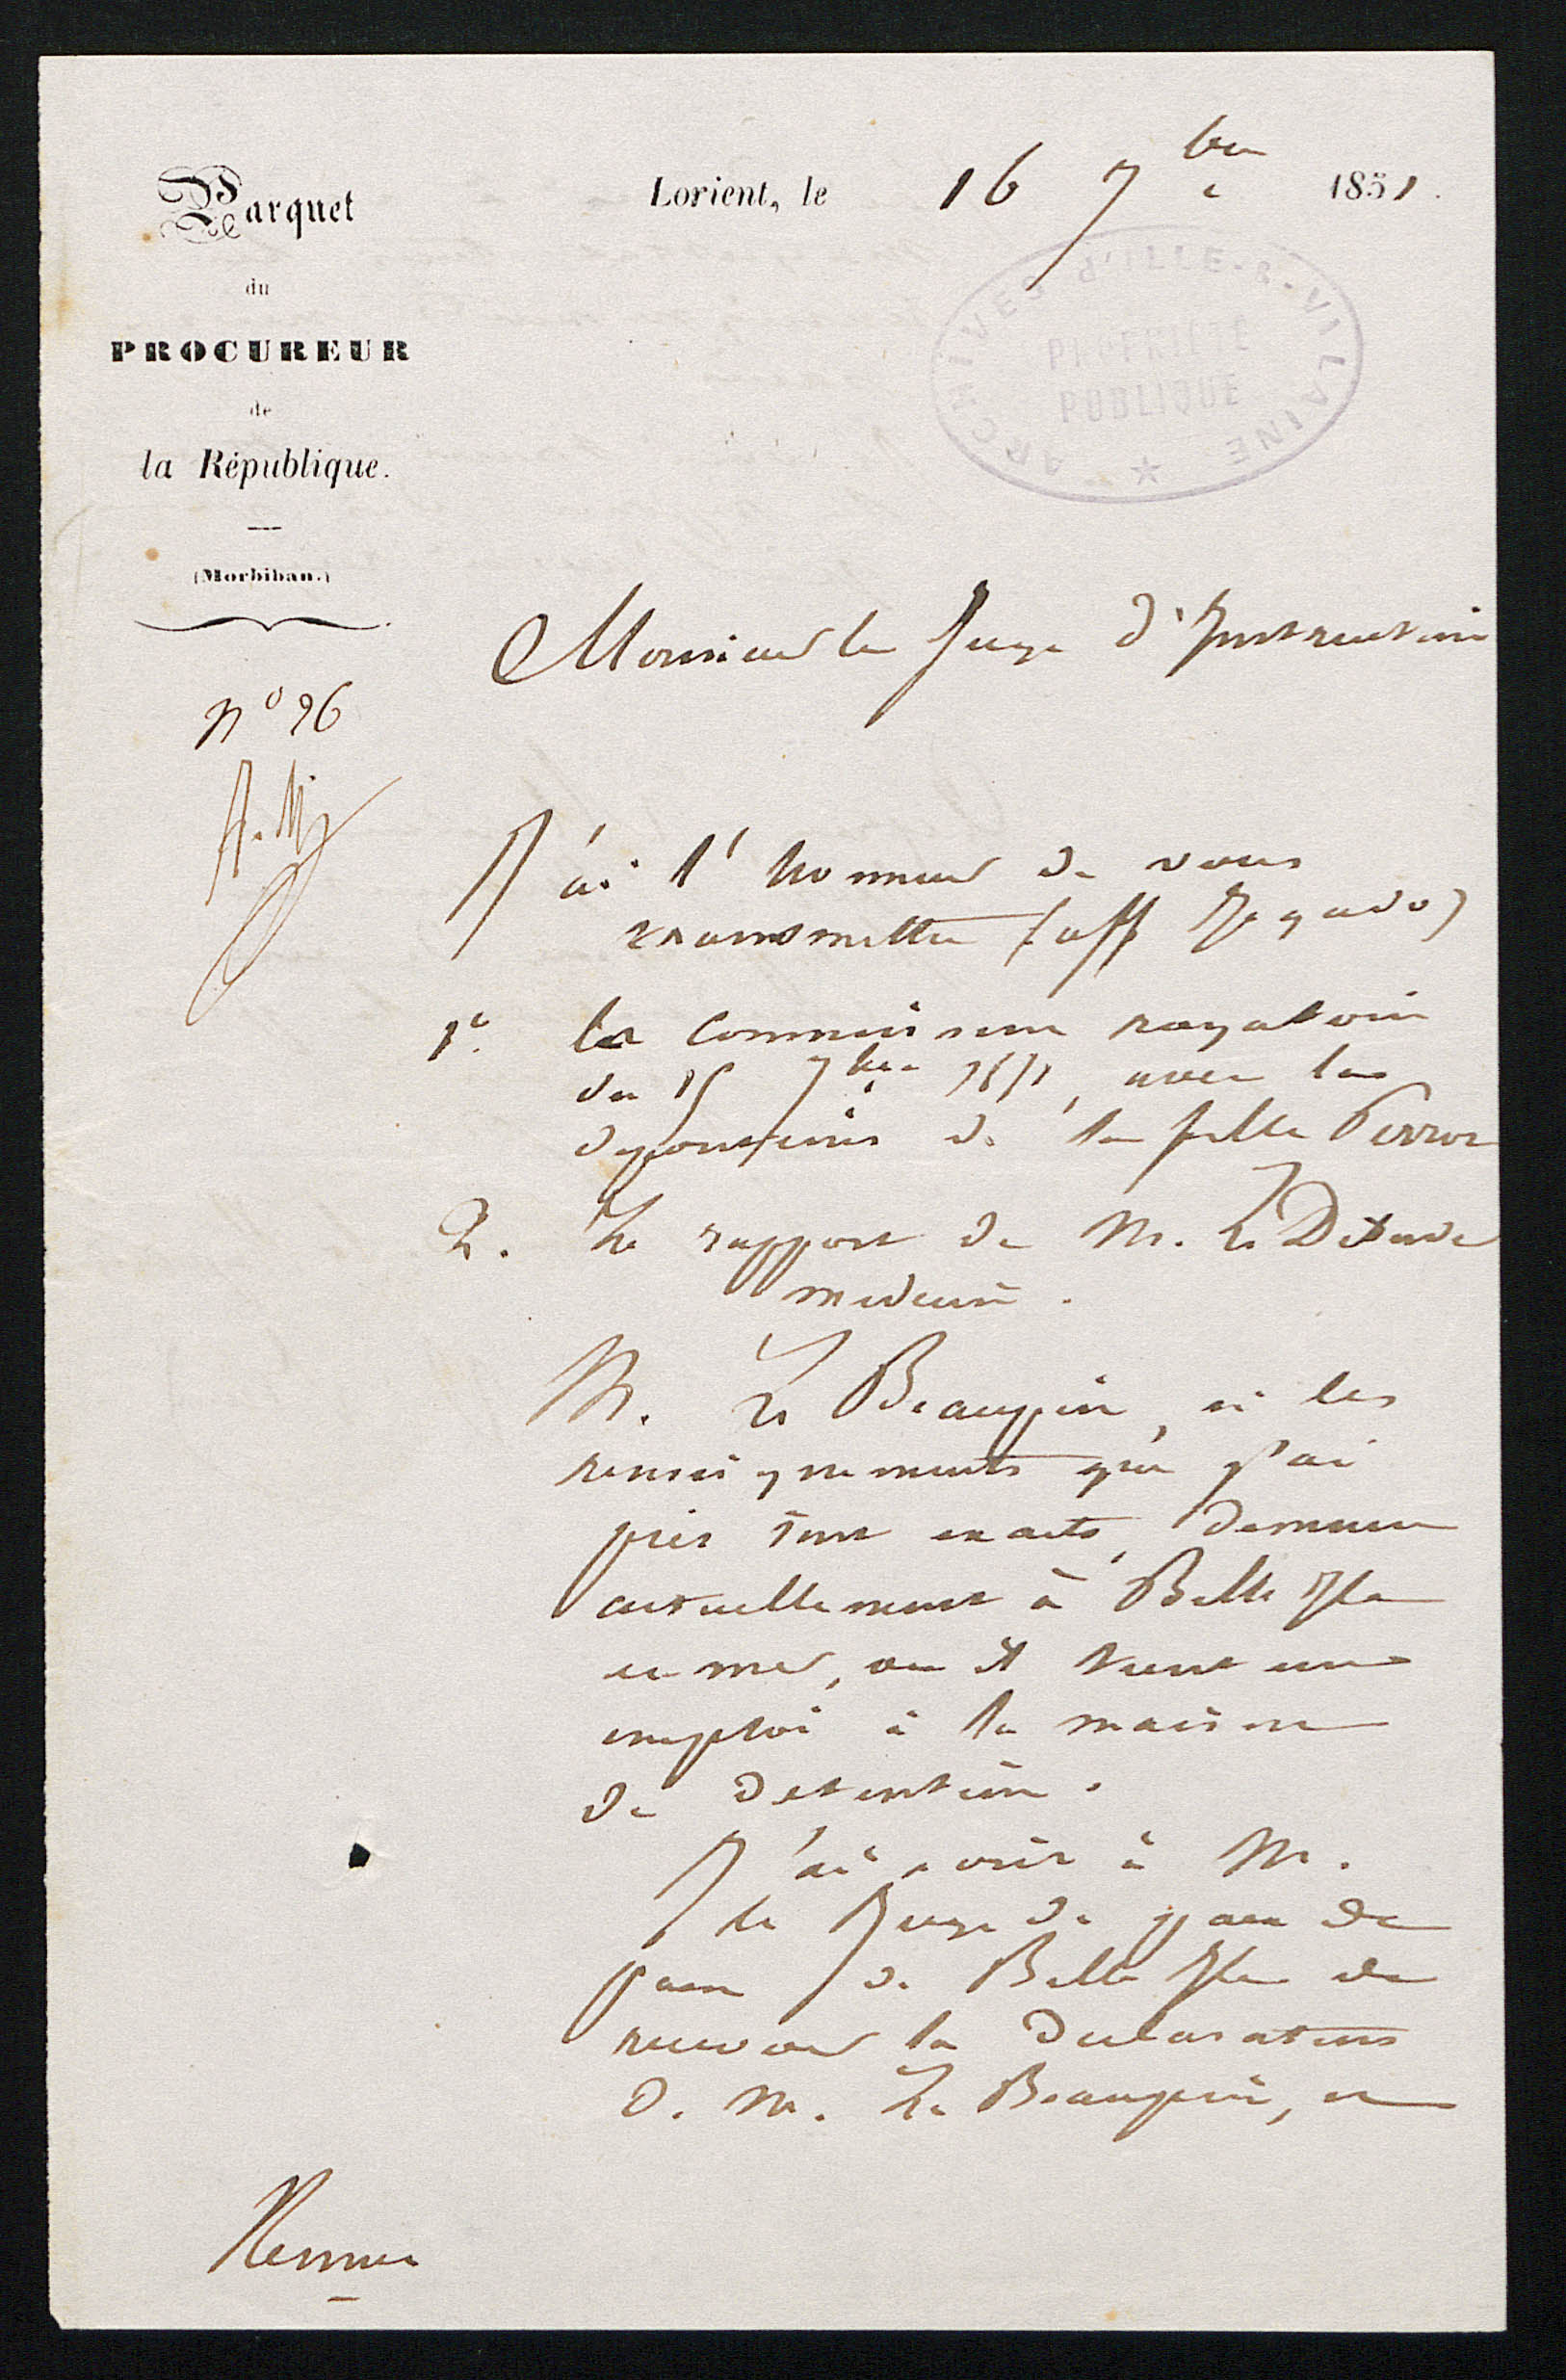 Parquet
du
PROCUREUR
de
la République.
(Morbihan.)
Lorient, le 16 7bre 1851.
ARCHIVES d'ILLE-&-VILAINE
PROPRIÉTÉ
PUBLIQUE
N° 96
Monsieur le Juge d'Instruction
J'ai l'honneur de vous
transmettre (aff Jegado)
1° la commission rogatoire
du 15 7bre 1851, avec les
depositions de la fille Perron
2. Le rapport de M. Le Dètude
medecin.
M. Le Beaupin, si les
renseignements que j'ai
pris sont exacts, demeure
actuellement à Belle Ile
en mer, ou il tient un
emploi à la maison
de detention.
J'ai ecrit à M.
le Juge de paix de
paix de Belle Ile de
recevoir la declaration
de M. Le Beaupin, et
Rennes